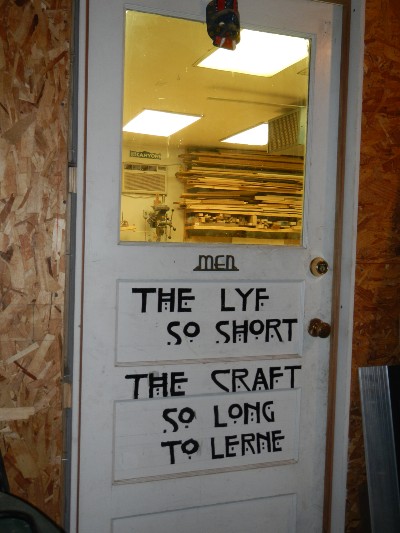 MEN
THE LYF
SO SHORT
THE CRAFT
SO LONG
TO LERNE